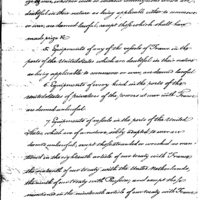 doubtful in their nature as being applicable either to commerce
or war, are deemed lawful, except those which shall have
made prize &c
5. Equipments of any of the vessels of France in the
ports of the United States which are doubtful in their nature
as being applicable to commerce or war, are deemed lawful
6. Equipments of every kind in the ports of the
United States of privateers of the powers at war with France
are deemed unlawful
7. Equipments of vessels in the ports of the United
States which are of a nature solely adapted to war are
deemed unlawful, except those stranded or wrecked as men
tioned in the eighteenth article of our treaty with France
the sixteenth of our treaty with the United Netherlands,
the ninth of our treaty with Prussia, and except those
mentioned in the nineteenth article of our treaty with France